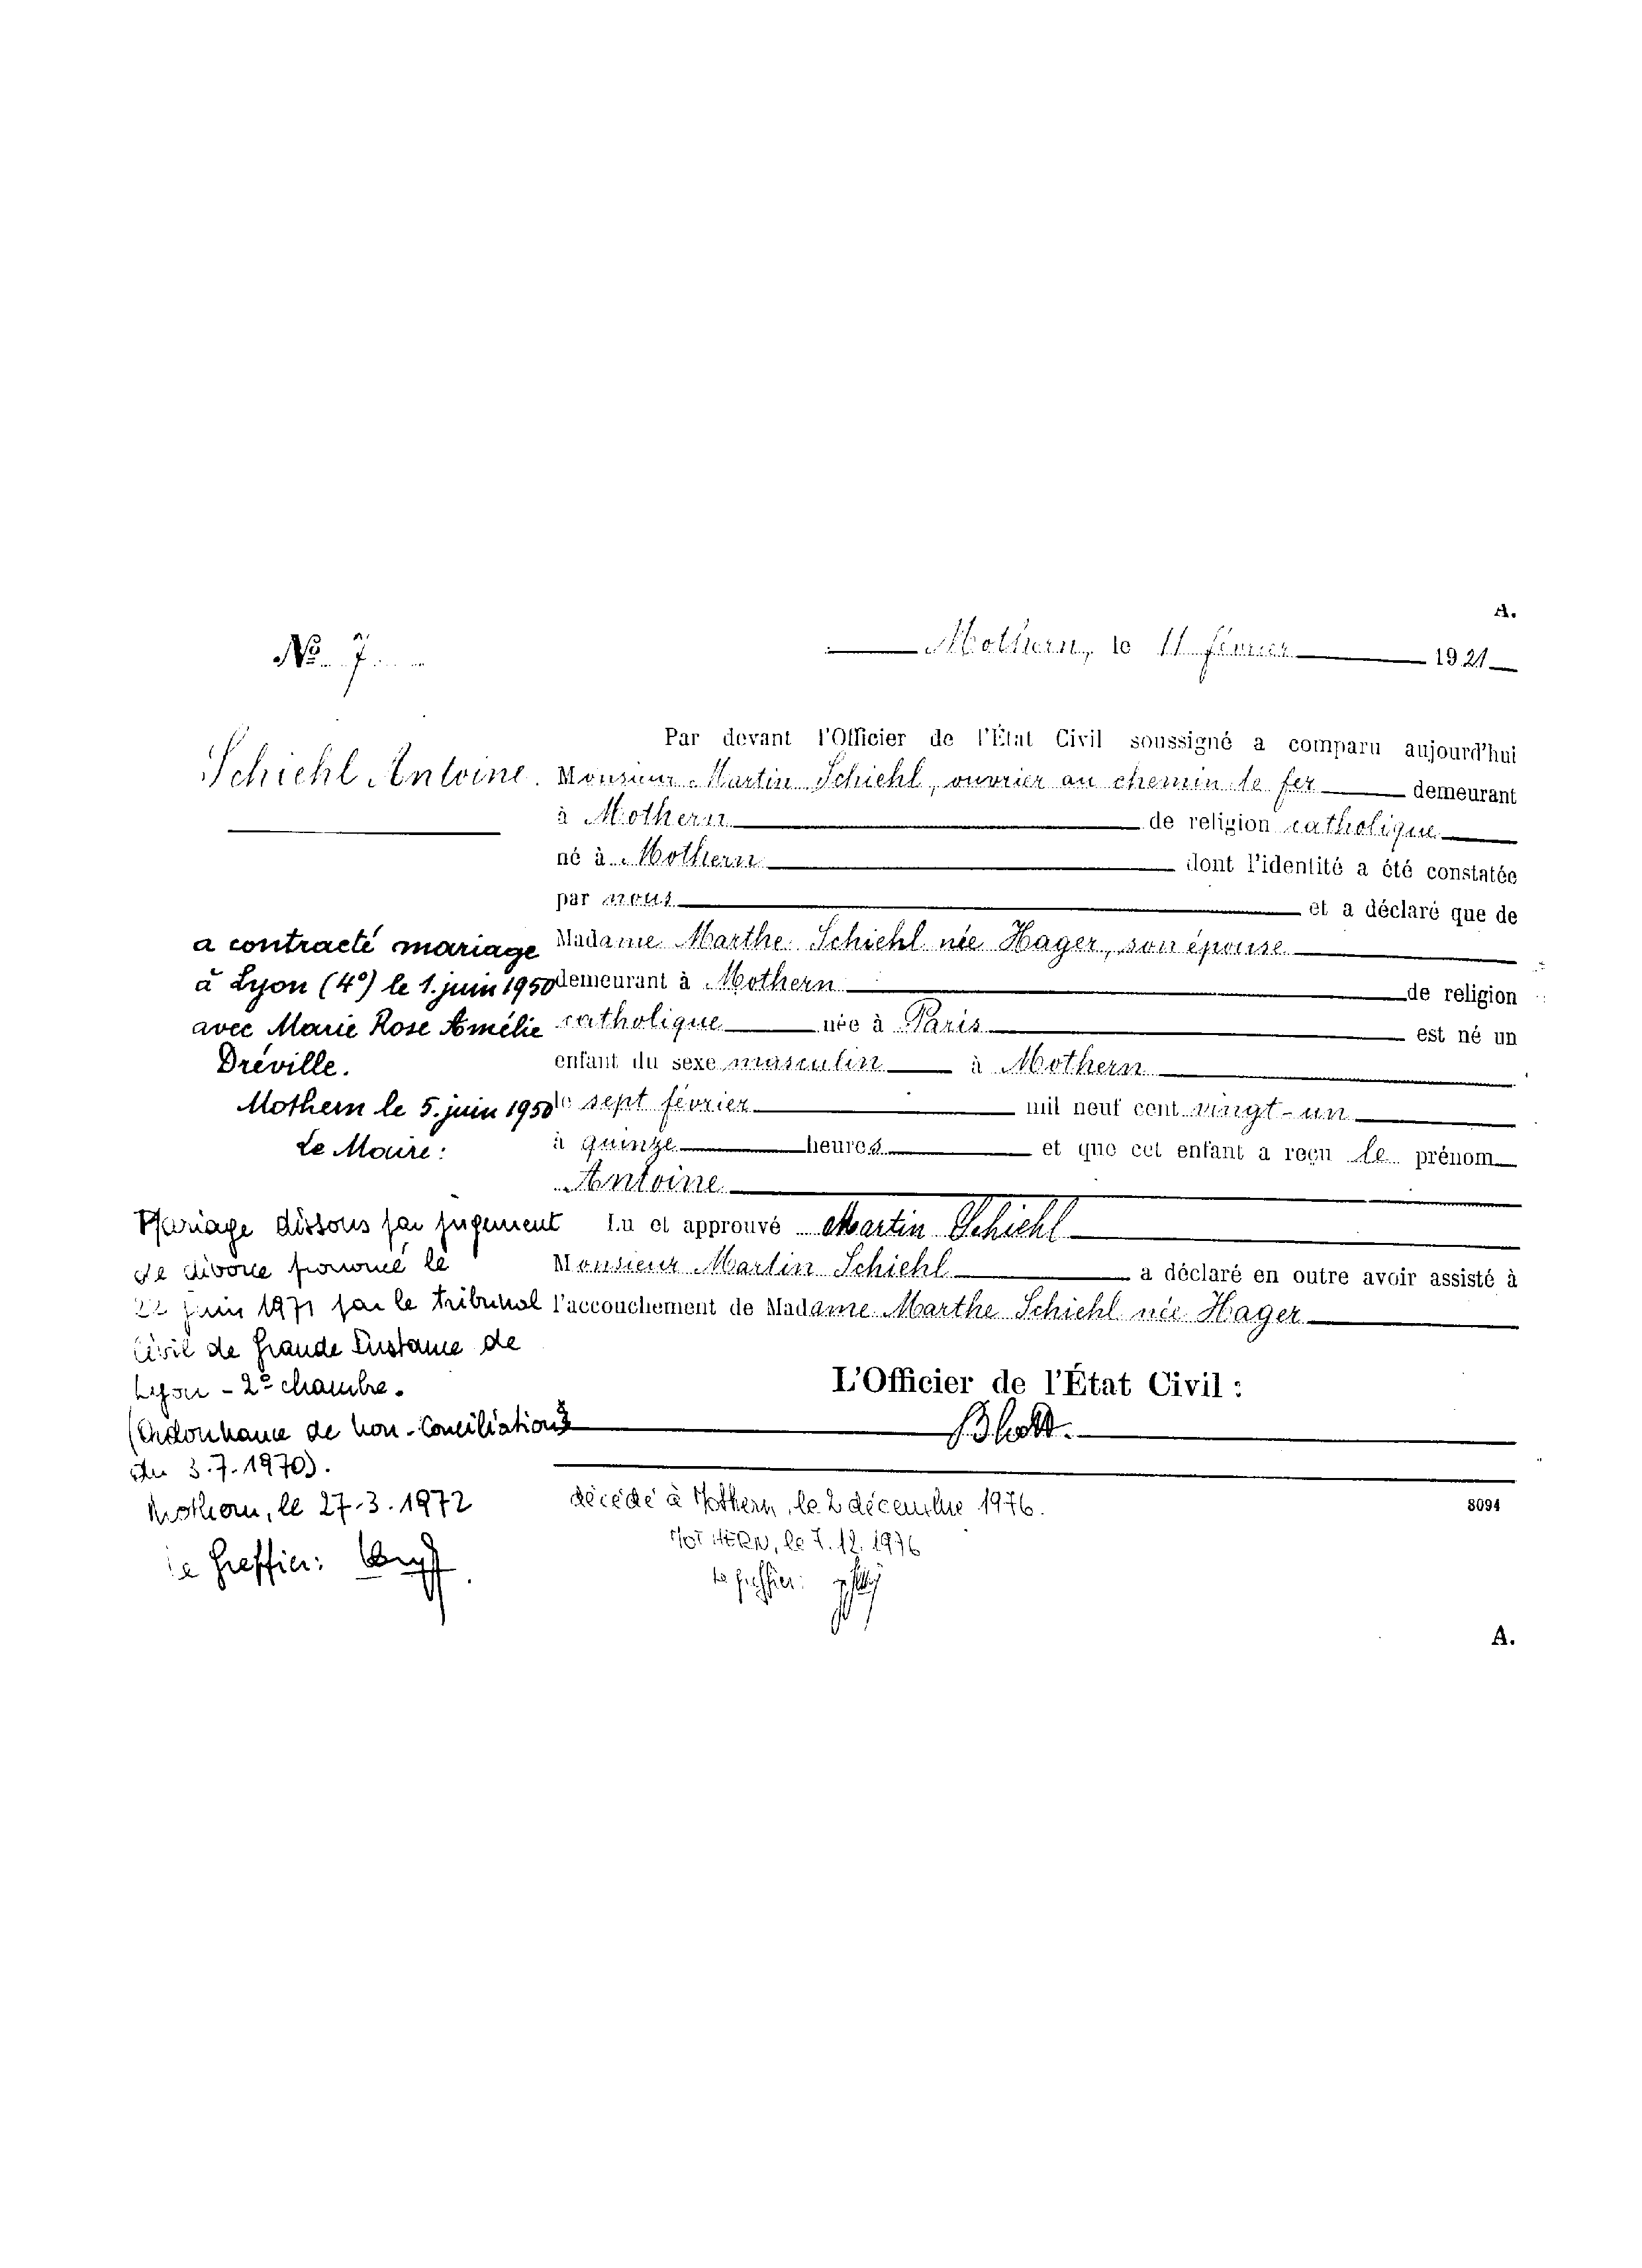 A.
No 7
Mothern, le 11 février 1921
Schiehl Antoine.
Par devant l'Officier de l'État Civil soussigné a comparu aujourd'hui
Monsieur Martin Schiehl, ouvrier au chemin de fer demeurant
à Mothern de religion catholique
né à Mothern dont l'identité a été constatée
par nous et a déclaré que de
Madame Marthe Schiehl née Hager, son épouse
demeurant à Mothern de religion
catholique née à Paris est né un
enfant du sexe masculin à Mothern
le sept février mil neuf cent vingt-un
à quinze heures et que cet enfant a reçu le prénom
Antoine
Lu et approuvé Martin Schiehl
Monsieur Martin Schiehl a déclaré en outre avoir assisté à
l'accouchement de Madame Marthe Schiehl née Hager
L'Officier de l'État Civil :
a contracté mariage
à Lyon (4º) le 1. juin 1950
avec Marie Rose Amélie
Dréville.
Mothern le 5. juin 1950
Le Maire :
Mariage dissous par jugement
de divorce prononcé le
22 juin 1971 par le tribunal
Civil de Grande Instance de
Lyon - 2e chambre.
(Ordonnance de non-Conciliation
du 3.7.1970).
Mothern, le 27-3.1972
le Greffier :
décédé à Mothern, le 2 décembre 1976.
MOTHERN, le 7.12.1976
Le greffier :
8094
A.